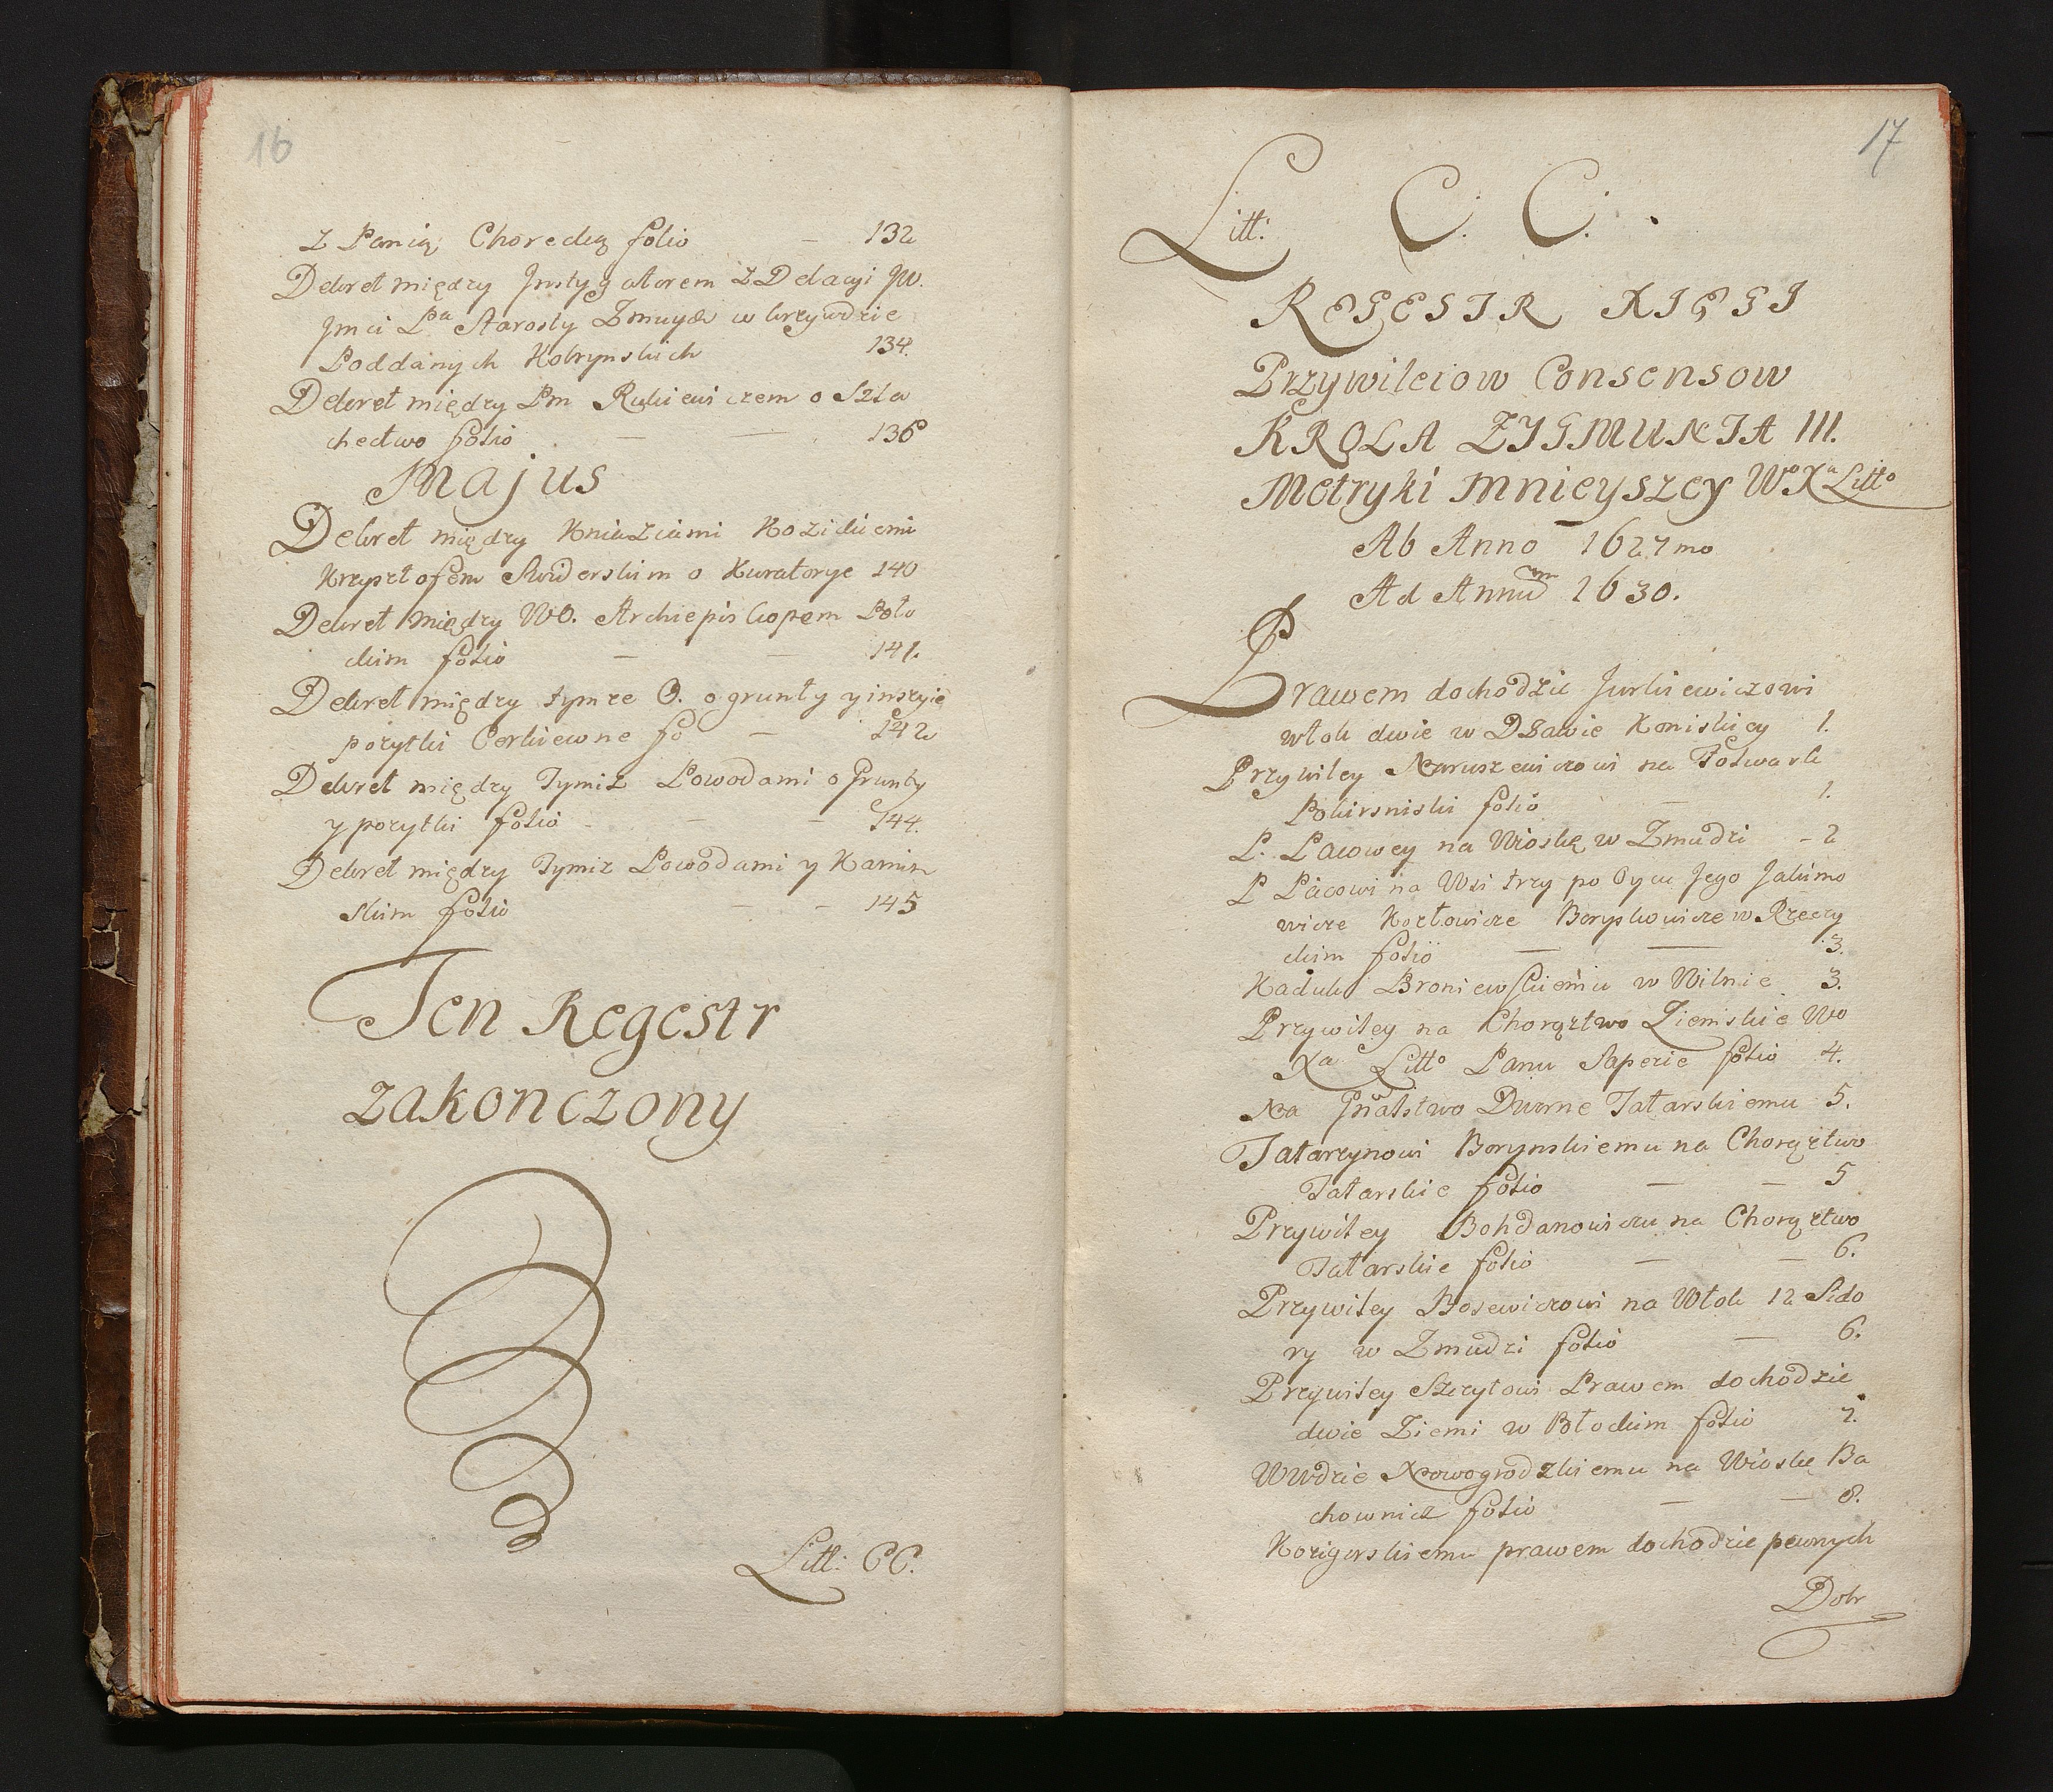 16
z Panią Chorecką folio — 132
Dekret między Instygatorem z Delacyi JW.
Jmci Pa Starosty Zmuydz w krzywdzie
Poddanych Kobrynskich 134.
Dekret między Pm Rukiewiczem o Szla
chectwo folio — — 136
Majus
Dekret między Kniaziami Kozickiemi
Krzysztofem Swiderskim o Kuratorye 140
Dekret między WO. Archiepiskopem Poło
ckim folio — — 141.
Dekret między tymze O. o grunty y inszyie
pozytki Cerkiewne fo — 142
Dekret między Tymiz Powodami o Grunty
y pozytki folio — — — 144.
Dekret między Tymiz Powodami y Kamin
skim folio — — 145
Ten Regestr
zakonczony
Litt: CC.
17
Litt: C. C.
REGESTR XIĘGI
Przywileiow Consensow
KROLA ZYGMUNTA III.
Metryki mnieyszey Wo Xa Litto
Ab Anno 1627mo
Ad Annum 1630.
Prawem dochodzic Jurkiewiczowi
włok dwie w Dzawie Koniskiey 1.
Przywiley Naruszewiczowi na Folwark
Pokirsniski folio — 1.
P. Pacowey na Wioskę w Zmudzi — 2
P Pacowi na Wsi trzy po Oycu Jego Jakimo
wicze Kozłowicze Boryskowicze w Rzeczy
ckim folio — — 3.
Kaduk Broniewskiemu w Wilnie 3.
Przywiley na Chorąztwo Ziemskie Wo
Xa Litto Panu Sapezie folio 4.
Na Gnalstwo Dworne Tatarskiemu 5.
Tatarzynowi Borynskiemu na Chorąztwo
Tatarskie folio — — 5
Przywiley Bohdanowiczu na Chorąztwo
Tatarskie folio — — 6.
Przywiley Bosewiczowi na Włok 12 Sido
ry w Zmudzi folio — 6.
Przywiley Szczytowi Prawem dochodzic
dwie Ziemi w Płockim folio 7.
WWdzie Nowogrodzkiemu na Wioskę Ba
chownicz folio — — 8.
Kozigerskiemu prawem dochodzic pewnych
Dobr